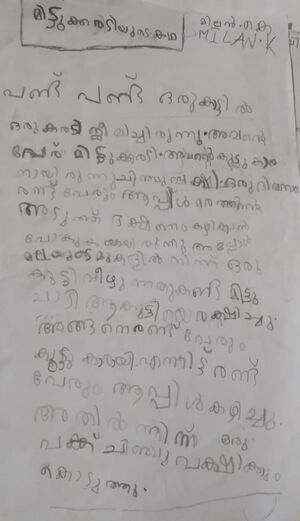 മിട്ടുക്കരടിയുടെ കഥ
മിലൻ. കെ
MILAN. K
പണ്ട് പണ്ട് ഒരു കാട്ടിൽ
ഒരു കരടി ജീവിച്ചിരുന്നു. അവന്റെ
പേര് മിട്ടുക്കരടി. അവന്റെ കൂട്ടുകാര
നായിരുന്നു ചിഞ്ചു പക്ഷി. ഒരു ദിവസം
രണ്ട് പേരും ആപ്പിൾ മരത്തിന്റെ
അടുത്ത് ഭക്ഷണം കഴിക്കാൻ
പോകുകയായിരുന്നു അപ്പോൾ
മലയുടെ മുകളിൽ നിന്ന് ഒരു
കുട്ടി വീഴുന്നതു കണ്ട് മിട്ടു
ചാടി ആ കുട്ടിയെ രക്ഷിച്ചു.
അങ്ങനെ രണ്ട് പേരും
കൂട്ടുകാരായി. എന്നിട്ട് രണ്ട്
പേരും ആപ്പിൾ കഴിച്ചു.
അതിൽ നിന്ന് ഒരു
പങ്ക് ചിഞ്ചു പക്ഷിക്കും
കൊടുത്തു.